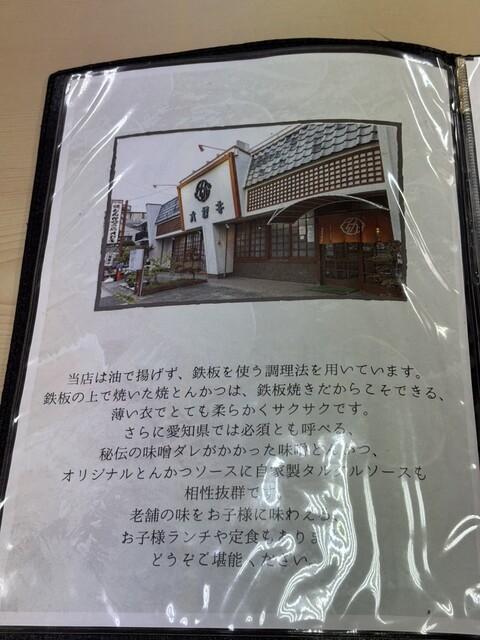 当店は油で揚げず、鉄板を使う調理法を用いています。
鉄板の上で焼いた焼とんかつは、鉄板焼きだからこそできる、
薄い衣でとても柔らかくサクサクです。
さらに愛知県では必須とも呼べる、
秘伝の味噌ダレがかかった味噌とんかつ、
オリジナルとんかつソースに自家製タルタルソースも
相性抜群で
老舗の味をお子様に味わえる
お子様ランチや定食もありま
どうぞご堪能ください